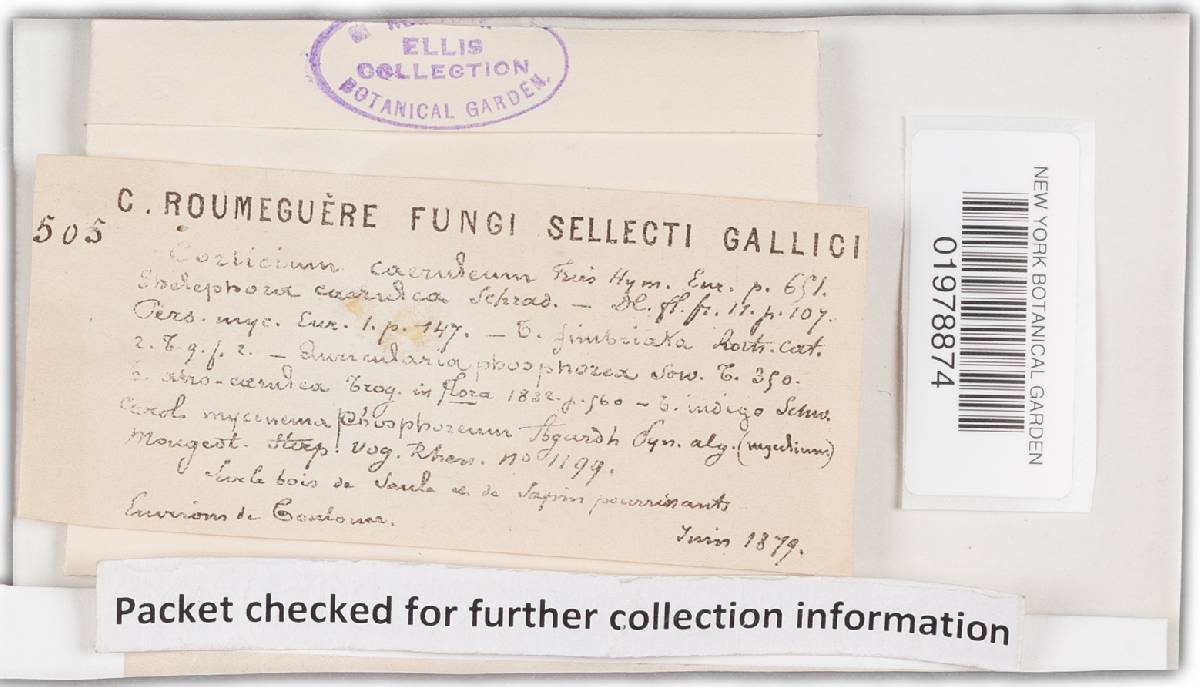 ELLIS
COLLECTION
BOTANICAL GARDEN.
C. ROUMEGUÈRE FUNGI SELLECTI GALLICI
505
Corticium caeruleum Fries Hym. Eur. p. 651.
Thelephora caerulea Schrad. — DC. fl. fr. 11. p. 107.
Pers. myc. Eur. 1. p. 147. — T. fimbriata Roth. cat.
2. T 9. f. 2. — Auricularia phosphorea Sow. T. 350.
atro-caerulea Trog. in flora 1832. p. 560 — T. indigo Schw.
Carol mycinema Phosphoreum Agardh Syn. alg. (mycelium)
Mougeot. Stirp. Vog. Rhen. no 1199.
Sur le bois de Saule et de Sapin pourrissants
Environs de
Juin 1879.
NEW YORK BOTANICAL GARDEN
01978874
Packet checked for further collection information